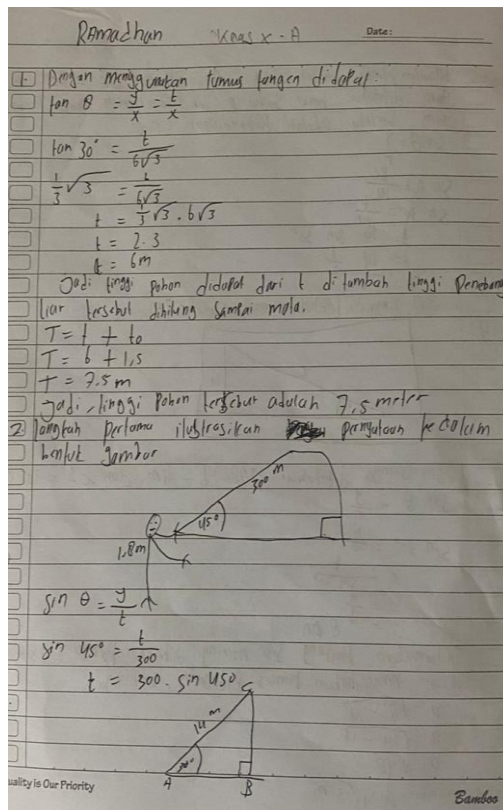 RAmadhan Kelas X - A Date:
1. Dengan menggunakan rumus tangen didapat:
tan θ = y/x = t/x
tan 30° = t/6√3
1/3 √3 = t/6√3
t = 1/3 √3 . 6√3
t = 2.3
t = 6m
Jadi tinggi pohon didapat dari t ditambah tinggi Penebang
liar tersebut dihitung sampai mata.
T = t + to
T = 6 + 1,5
T = 7.5 m
Jadi, tinggi Pohon tersebut adalah 7,5 meter
2. langkah pertama ilustrasikan pernyataan kedalam
bentuk gambar
300 m
45°
1,8m
sin θ = y/t
sin 45° = t/300
t = 300 . sin 450
C
14 m
30°
A B
uality is Our Priority Bamboo